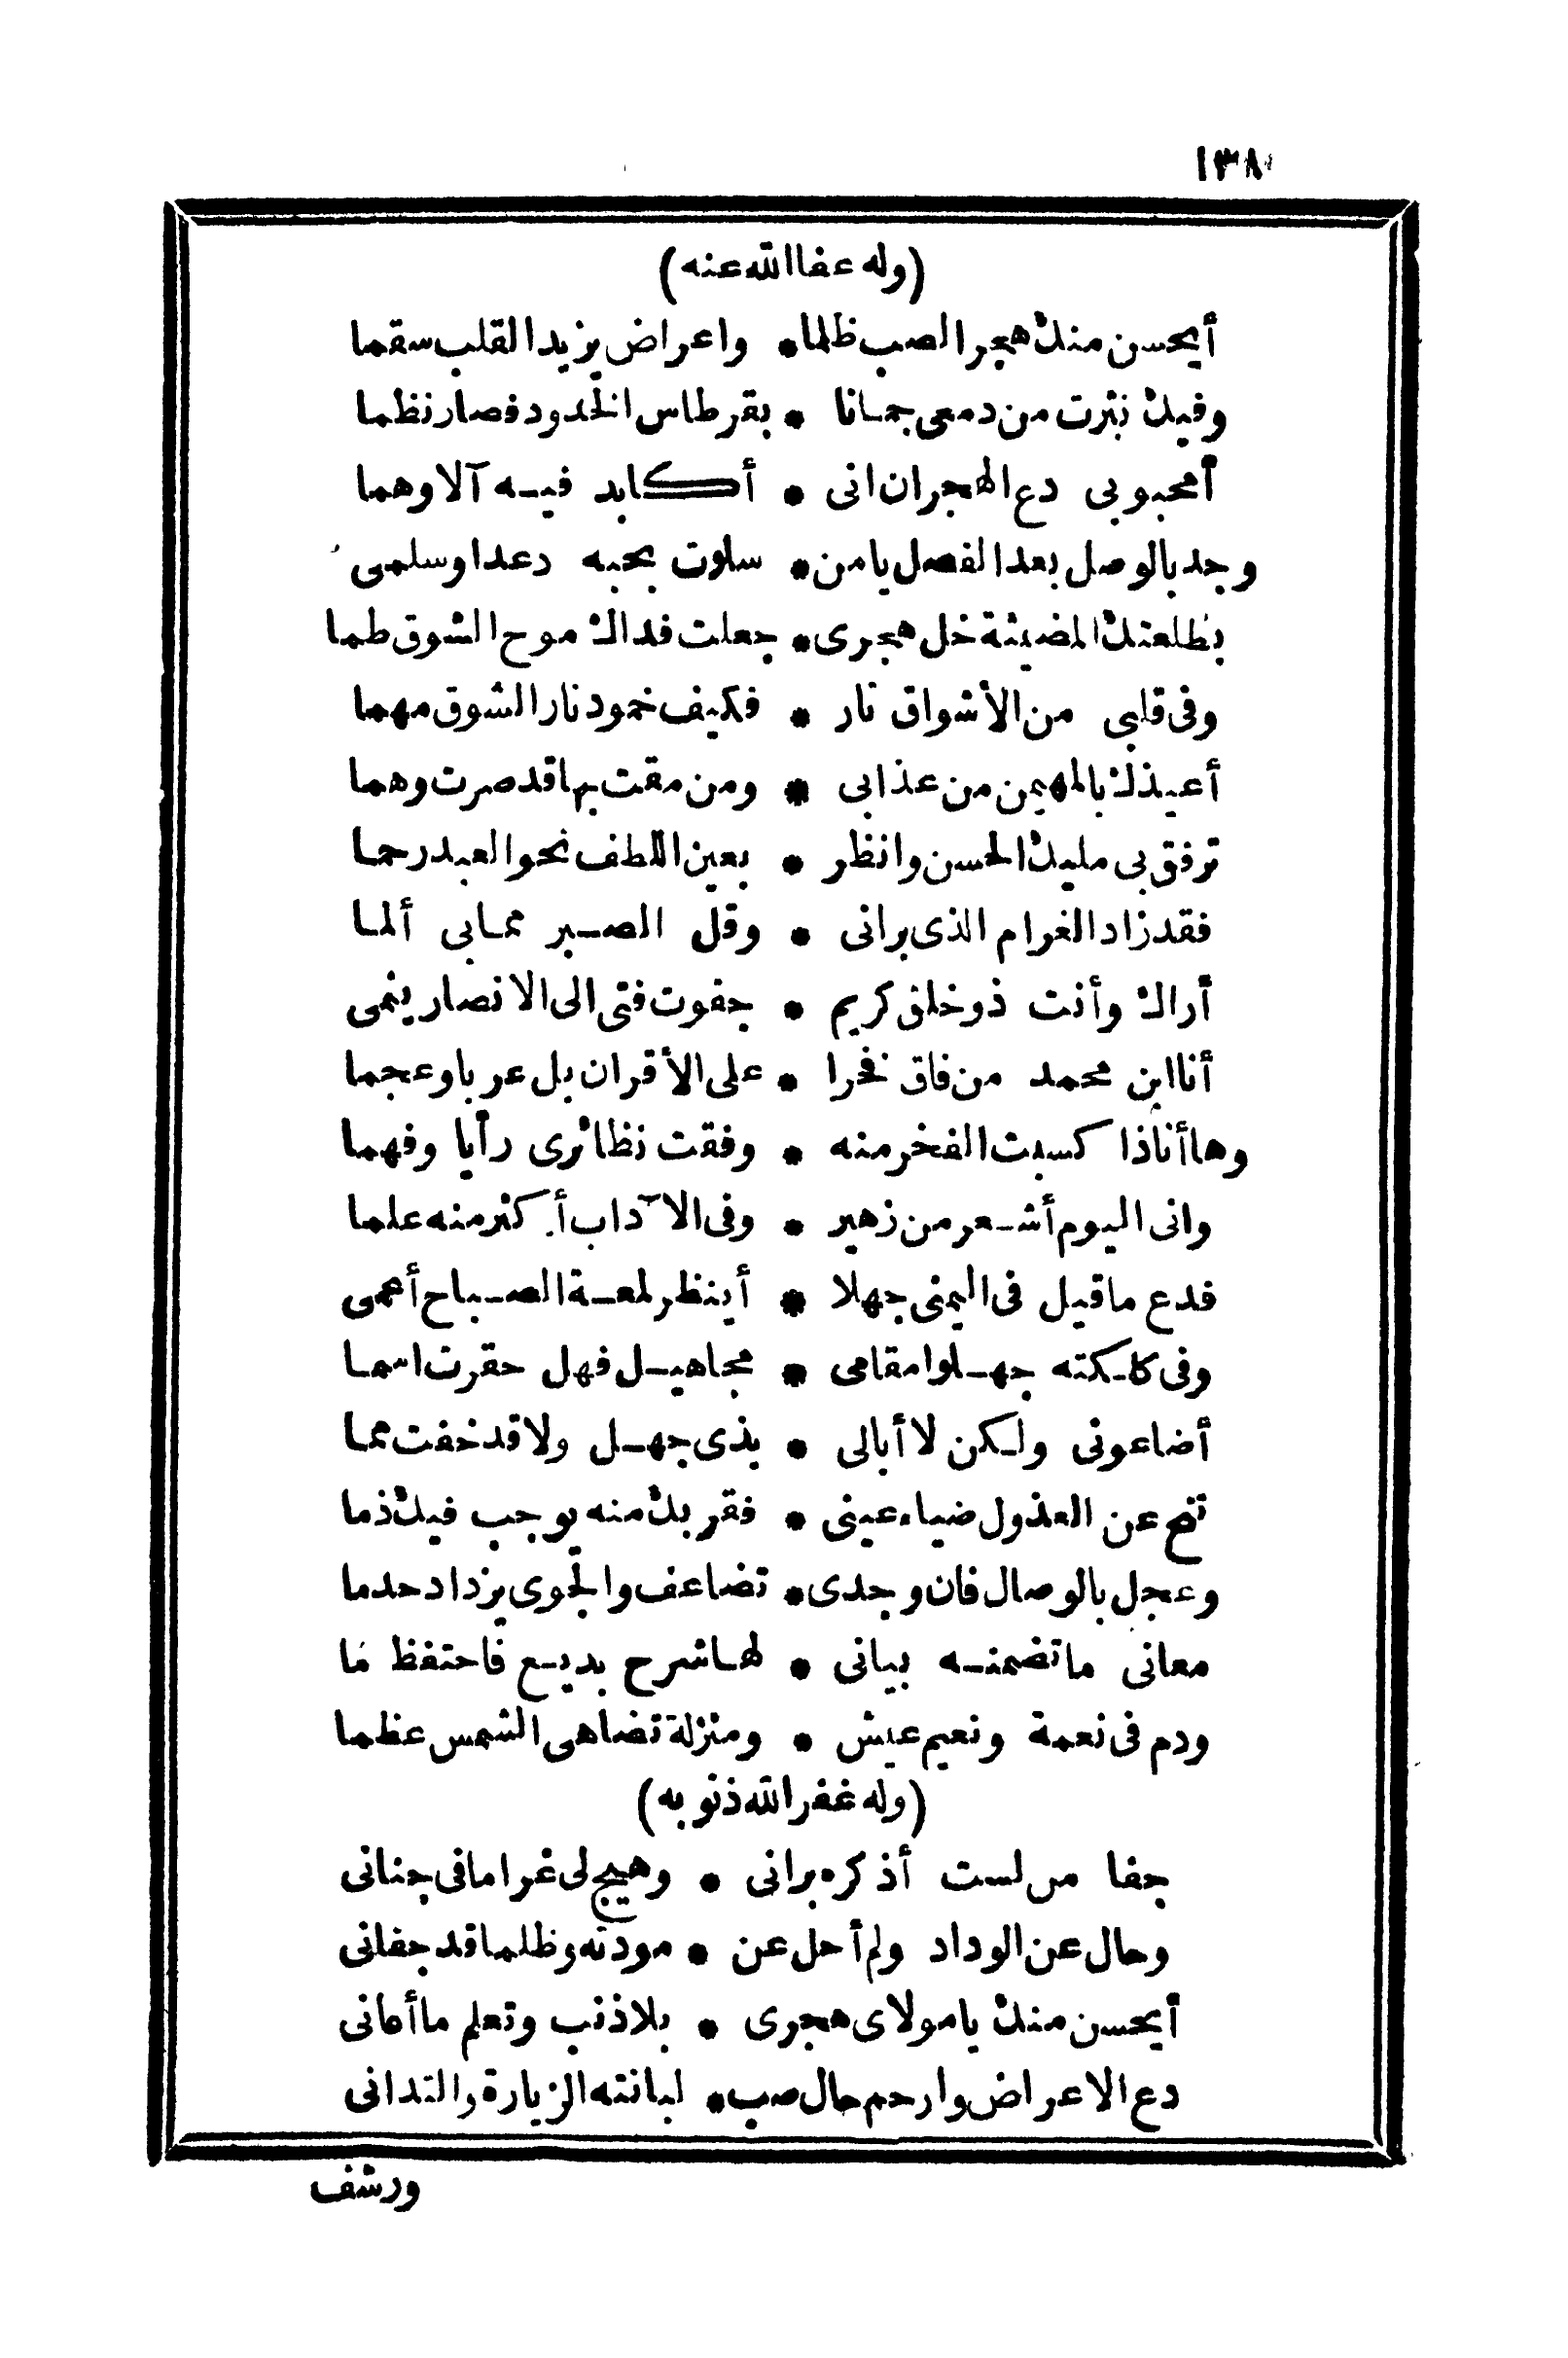 ١٣٨
(وله عفا الله عنه)
أيحسن منك هجر الصب ظلما * واعراض يزيد القلب سقما
وفيك نثرت من دمعى جمانا * بقرطاس الخدود فصار نظما
أمحبوبى دع الهجران انى * أكابد فيه آلاوهما
وجد بالوصل بعد الفصل يا من * سلوت بحبه دعدا وسلمى
بطلعتك المضيئة خل هجرى * جعلت فداك موج الشوق طما
وفى قلبى من الأشواق نار * فكيف خمود نار الشوق مهما
أعيذك بالمهيمن من عذابى * ومن مقت بها قد صرت وهما
ترفق بى مليك الحسن وانظر * بعين اللطف نحو العبد رحما
فقد زاد الغرام الذى برانى * وقل الصبر مما بى ألما
أراك وأنت ذو خلق كريم * جفوت فتى الى الانصار ينمى
أنا ابن محمد من فاق فخرا * على الأقران بل عربا وعجما
وها أنا ذا كسبت الفخر منه * وفقت نظائرى رأيا وفهما
وانى اليوم أشعر من زهير * وفى الآداب أكثر منه علما
فدع ما قيل فى اليمنى جهلا * أينظر لمعة الصباح أعمى
وفى كلكته جهلوا مقامى * مجاهيل فهل حقرت اسما
أضاعونى ولكن لا أبالى * بذى جهل ولا قد خفت مما
تنح عن العذول ضياء عينى * فقربك منه يوجب فيك ذما
وعجل بالوصال فان وجدى * تضاعف والجوى يزداد حدما
معانى ما تضمنه بيانى * لها شرح بديع فاحتفظ ما
ودم فى نعمة ونعيم عيش * ومنزلة تضاهى الشمس عظما
(وله غفر الله ذنوبه)
جفا من لست أذكره برانى * وهيج لى غراما فى جنانى
وحال عن الوداد ولم أحل عن * مودته وظلما قد جفانى
أيحسن منك يا مولاى هجرى * بلا ذنب وتعلم ما أعانى
دع الاعراض وارحم حال صب * لبانته الزيارة والتدانى
ورشف